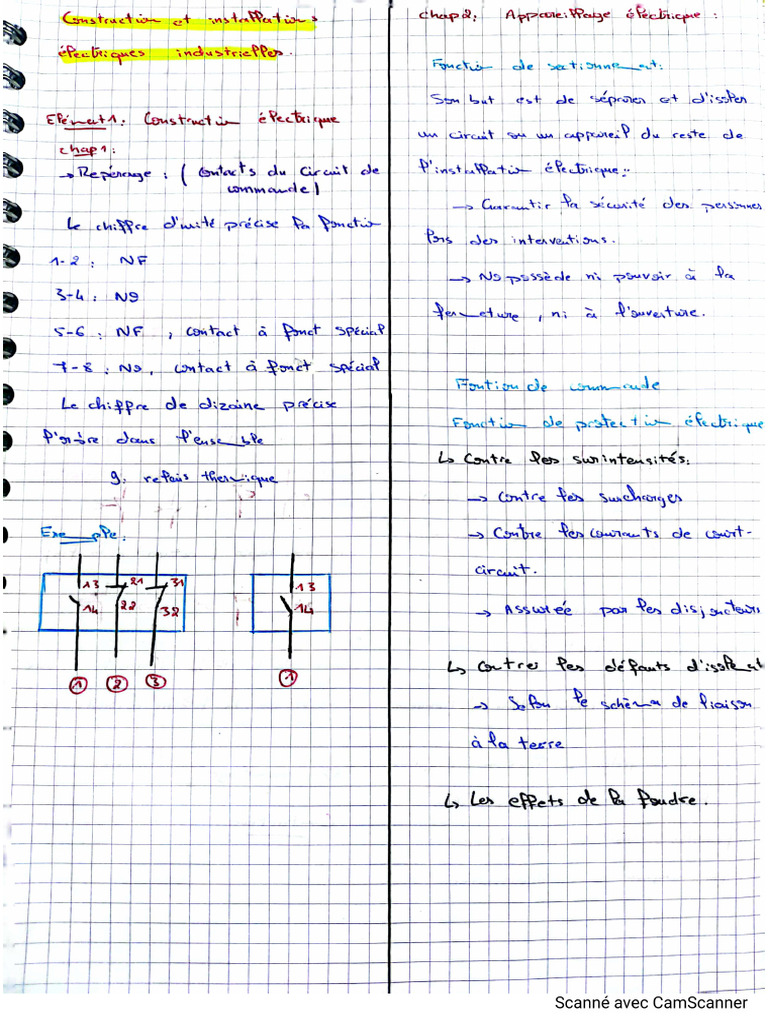 Construction et installations
électriques industrielles.
Elément 1: Construction électrique
chap 1:
→ Repérage: ( Contacts du circuit de
commande)
Le chiffre d'unité précise la fonction
1-2 : NF
3-4 : NO
5-6 : NF , contact à fonct spécial
7-8 : NO, contact à fonct spécial
Le chiffre de dizaine précise
l'ordre dans l'ensemble
9. relais thermique
Exemple:
13 21 31 13
14 22 32 14
1 2 3 1
Chap 2: Appareillage électrique :
Fonction de sectionnement:
Son but est de séparer et d'isoler
un circuit ou un appareil du reste de
l'installation électrique.
→ Garantir la sécurité des personnes
lors des interventions.
→ No possède ni pouvoir à la
fermeture, ni à l'ouverture.
Fontion de commande
Fonction de protection électrique
↳ Contre les surintensités:
→ Contre les surcharges
→ Contre les courants de court-
circuit.
→ Assurée par les disjoncteurs
↳ Contres les défauts d'isolement
→ Selon le schéma de liaison
à la terre
↳ Les effets de la foudre.
Scanné avec CamScanner